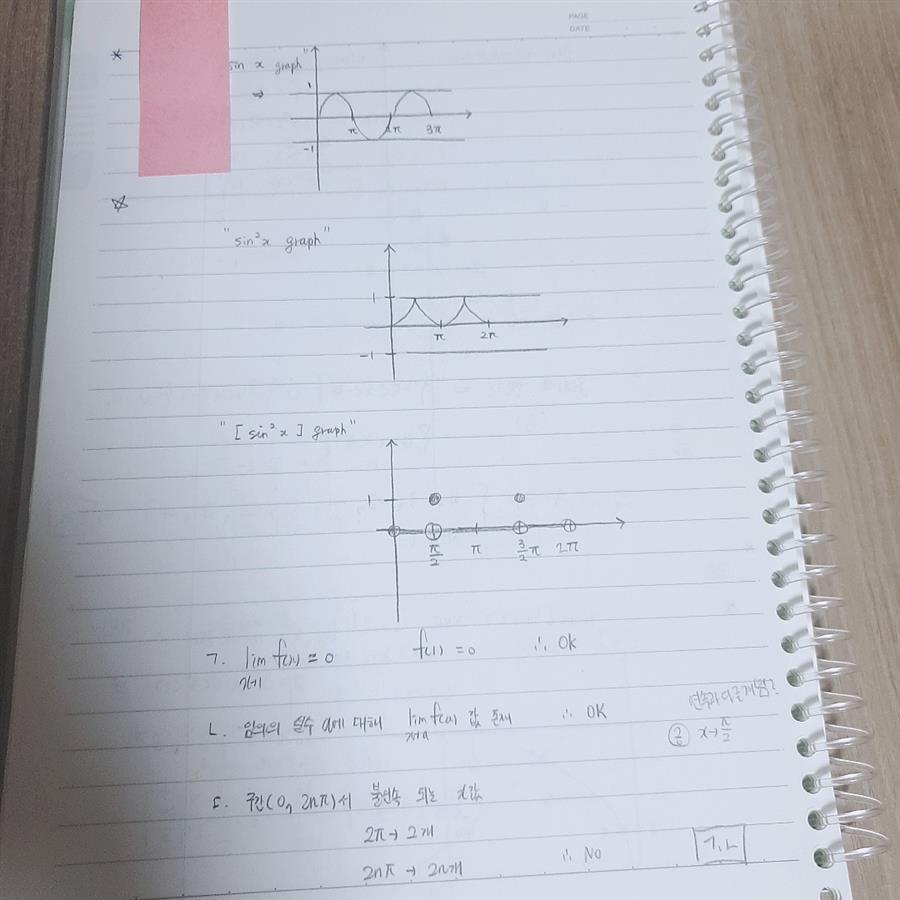 PAGE
DATE
sin x graph"
⇒
1
π 2π 3π
-1
"sin²x graph"
1
π 2π
-1
"[ sin²x ] graph"
1
π/2 π 3/2 π 2π
ㄱ. lim f(x) = 0 f(1) = 0 ∴ OK
x→1
ㄴ. 임의의 실수 a에 대해 lim f(x) 값 존재 ∴ OK
x→a
x→π/2
ㄷ. 구간(0, 2nπ)서 불연속 되는 x값
2π → 2개
2nπ → 2n개 ∴ No
ㄱ, ㄴ